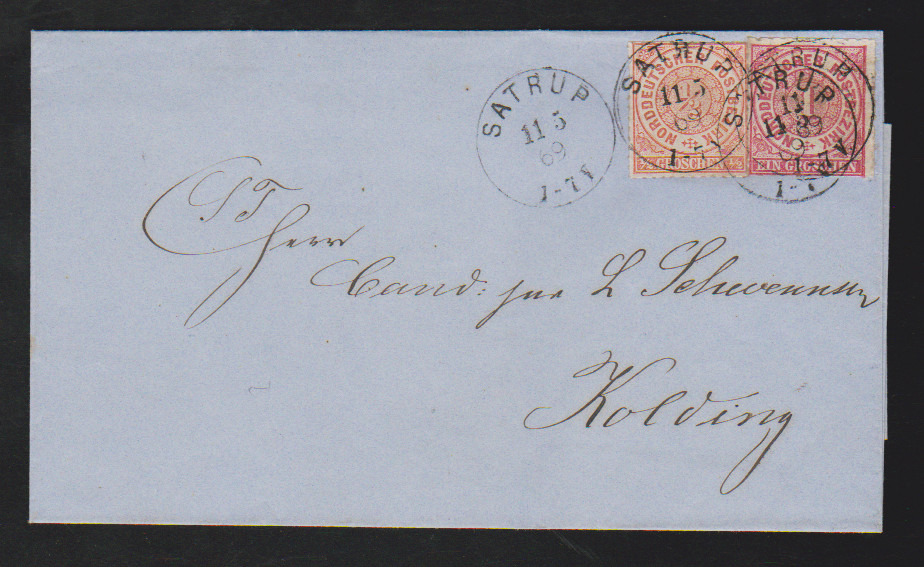 SATRUP
11 5
69
1-7 V
SATRUP
11 5
69
1-7 V
NORDDEUTSCHER POSTBEZIRK
GROSCHEN
NORDDEUTSCHER POSTBEZIRK
1
EIN GROSCHEN
ST
Herr
Cand: jur L Schwennsen
Kolding